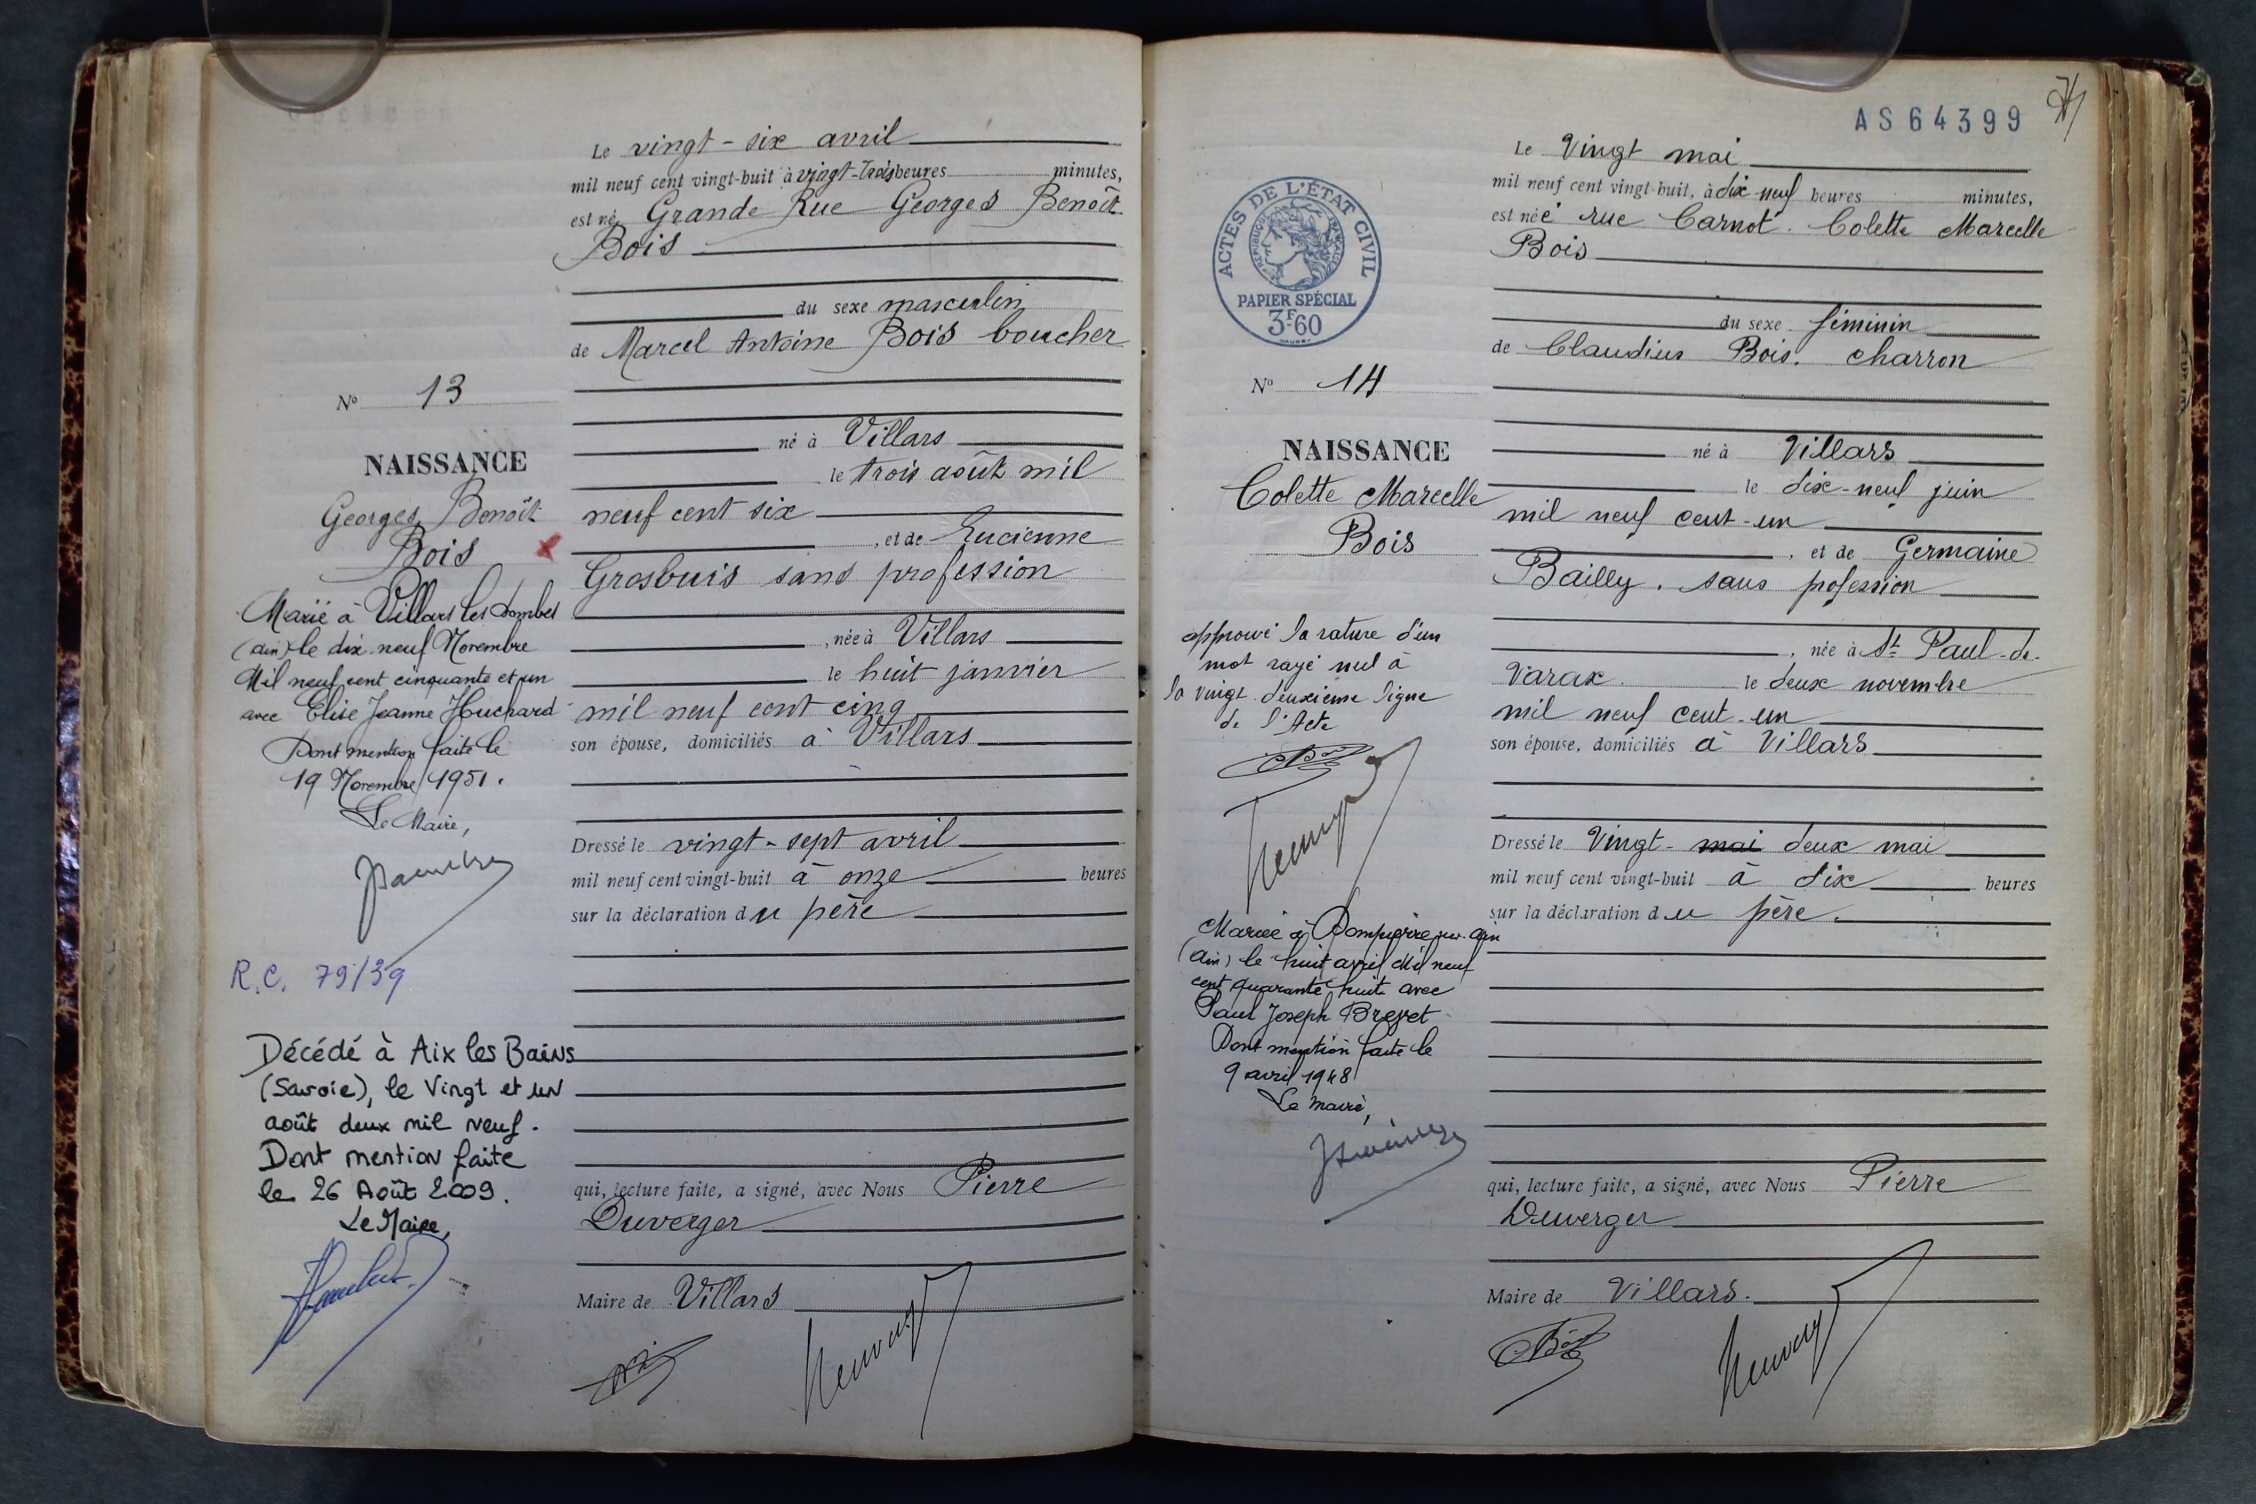 Le vingt-six avril
mil neuf cent vingt-huit à vingt-trois heures minutes,
est né, Grande Rue Georges Benoît
Bois
du sexe masculin
de Marcel Antoine Bois boucher
né à Villars
le trois août mil
neuf cent six
, et de Lucienne
Grosbuis sans profession
, née à Villars
le huit janvier
mil neuf cent cinq
son épouse, domiciliés à Villars
Dressé le vingt-sept avril
mil neuf cent vingt-huit à onze heures
sur la déclaration du père
qui, lecture faite, a signé, avec Nous Pierre
Duverger
Maire de Villars
N° 13
NAISSANCE
Georges Benoît
Bois
Marié à Villars les Dombes
(Ain) le dix-neuf Novembre
Mil neuf cent cinquante et un
avec Elise Jeanne Huchard
Dont mention faite le
19 Novembre 1951.
Le Maire,
R.C. 79/39
Décédé à Aix les Bains
(Savoie), le Vingt et un
août deux mil neuf.
Dont mention faite
le 26 Août 2009.
Le Maire,
AS64399
Le Vingt mai
mil neuf cent vingt-huit, à dix-neuf heures minutes,
est née rue Carnot. Colette Marcelle
Bois
du sexe féminin
de Claudius Bois. charron
né à Villars
le dix-neuf juin
mil neuf cent-un
, et de Germaine
Bailly. sans profession
, née à St Paul-de-
Varax. le deux novembre
mil neuf cent-un
son épouse, domiciliés à Villars
Dressé le Vingt- mai deux mai
mil neuf cent vingt-huit à dix heures
sur la déclaration du père.
qui, lecture faite, a signé, avec Nous Pierre
Duverger
Maire de Villars.
ACTES DE L'ÉTAT CIVIL
RÉPUBLIQUE FRANÇAISE
PAPIER SPÉCIAL
3F60
N° 14
NAISSANCE
Colette Marcelle
Bois
approuvé la rature d'un
mot rayé nul à
la vingt deuxième ligne
de l'Acte
Mariée à Dompierre sur Ain
(Ain) le huit avril Mil neuf
cent quarante huit avec
Paul Joseph Breyet
Dont mention faite le
9 avril 1948
Le maire,